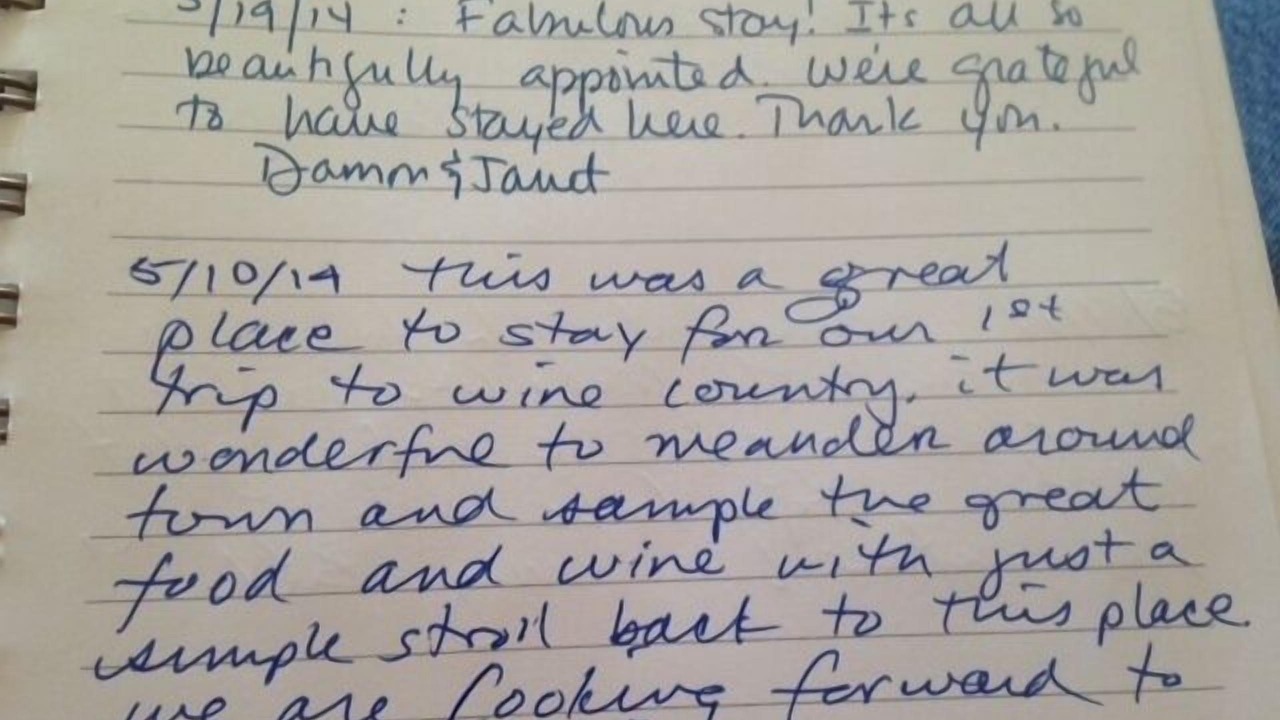 /19/14 : Fabulous stay! It's all so
beautifully appointed. We're grateful
to have stayed here. Thank you.
& Janet
5/10/14 this was a great
place to stay for our 1st
trip to wine country. it was
wonderful to meander around
town and sample the great
food and wine with just a
simple stroll back to this place.
we are looking forward to